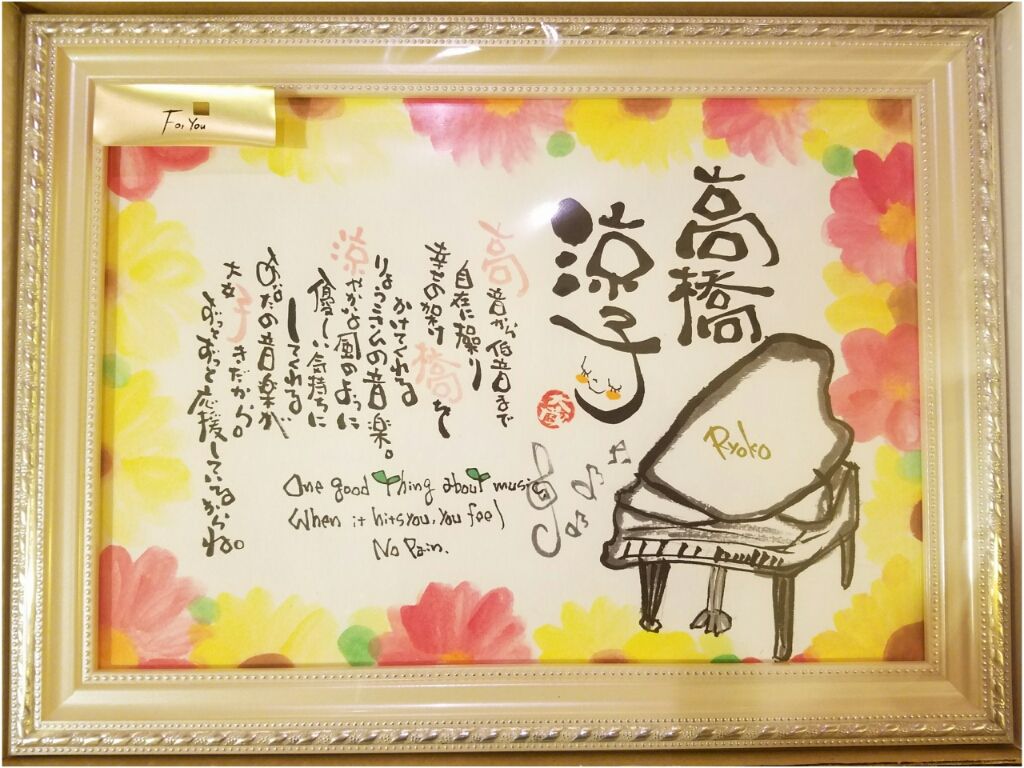 For You
高橋
涼子
Ryoko
高音から低音まで
自在に操り
幸せの架け橋を
かけてくれる
りょうこさんの音楽。
涼やかな風のように
優しい気持ちに
してくれる
あなたの音楽が
大好きだから。
ずっとずっと応援しているからね。
One good thing about music,
When it hits you, you feel
No Pain.